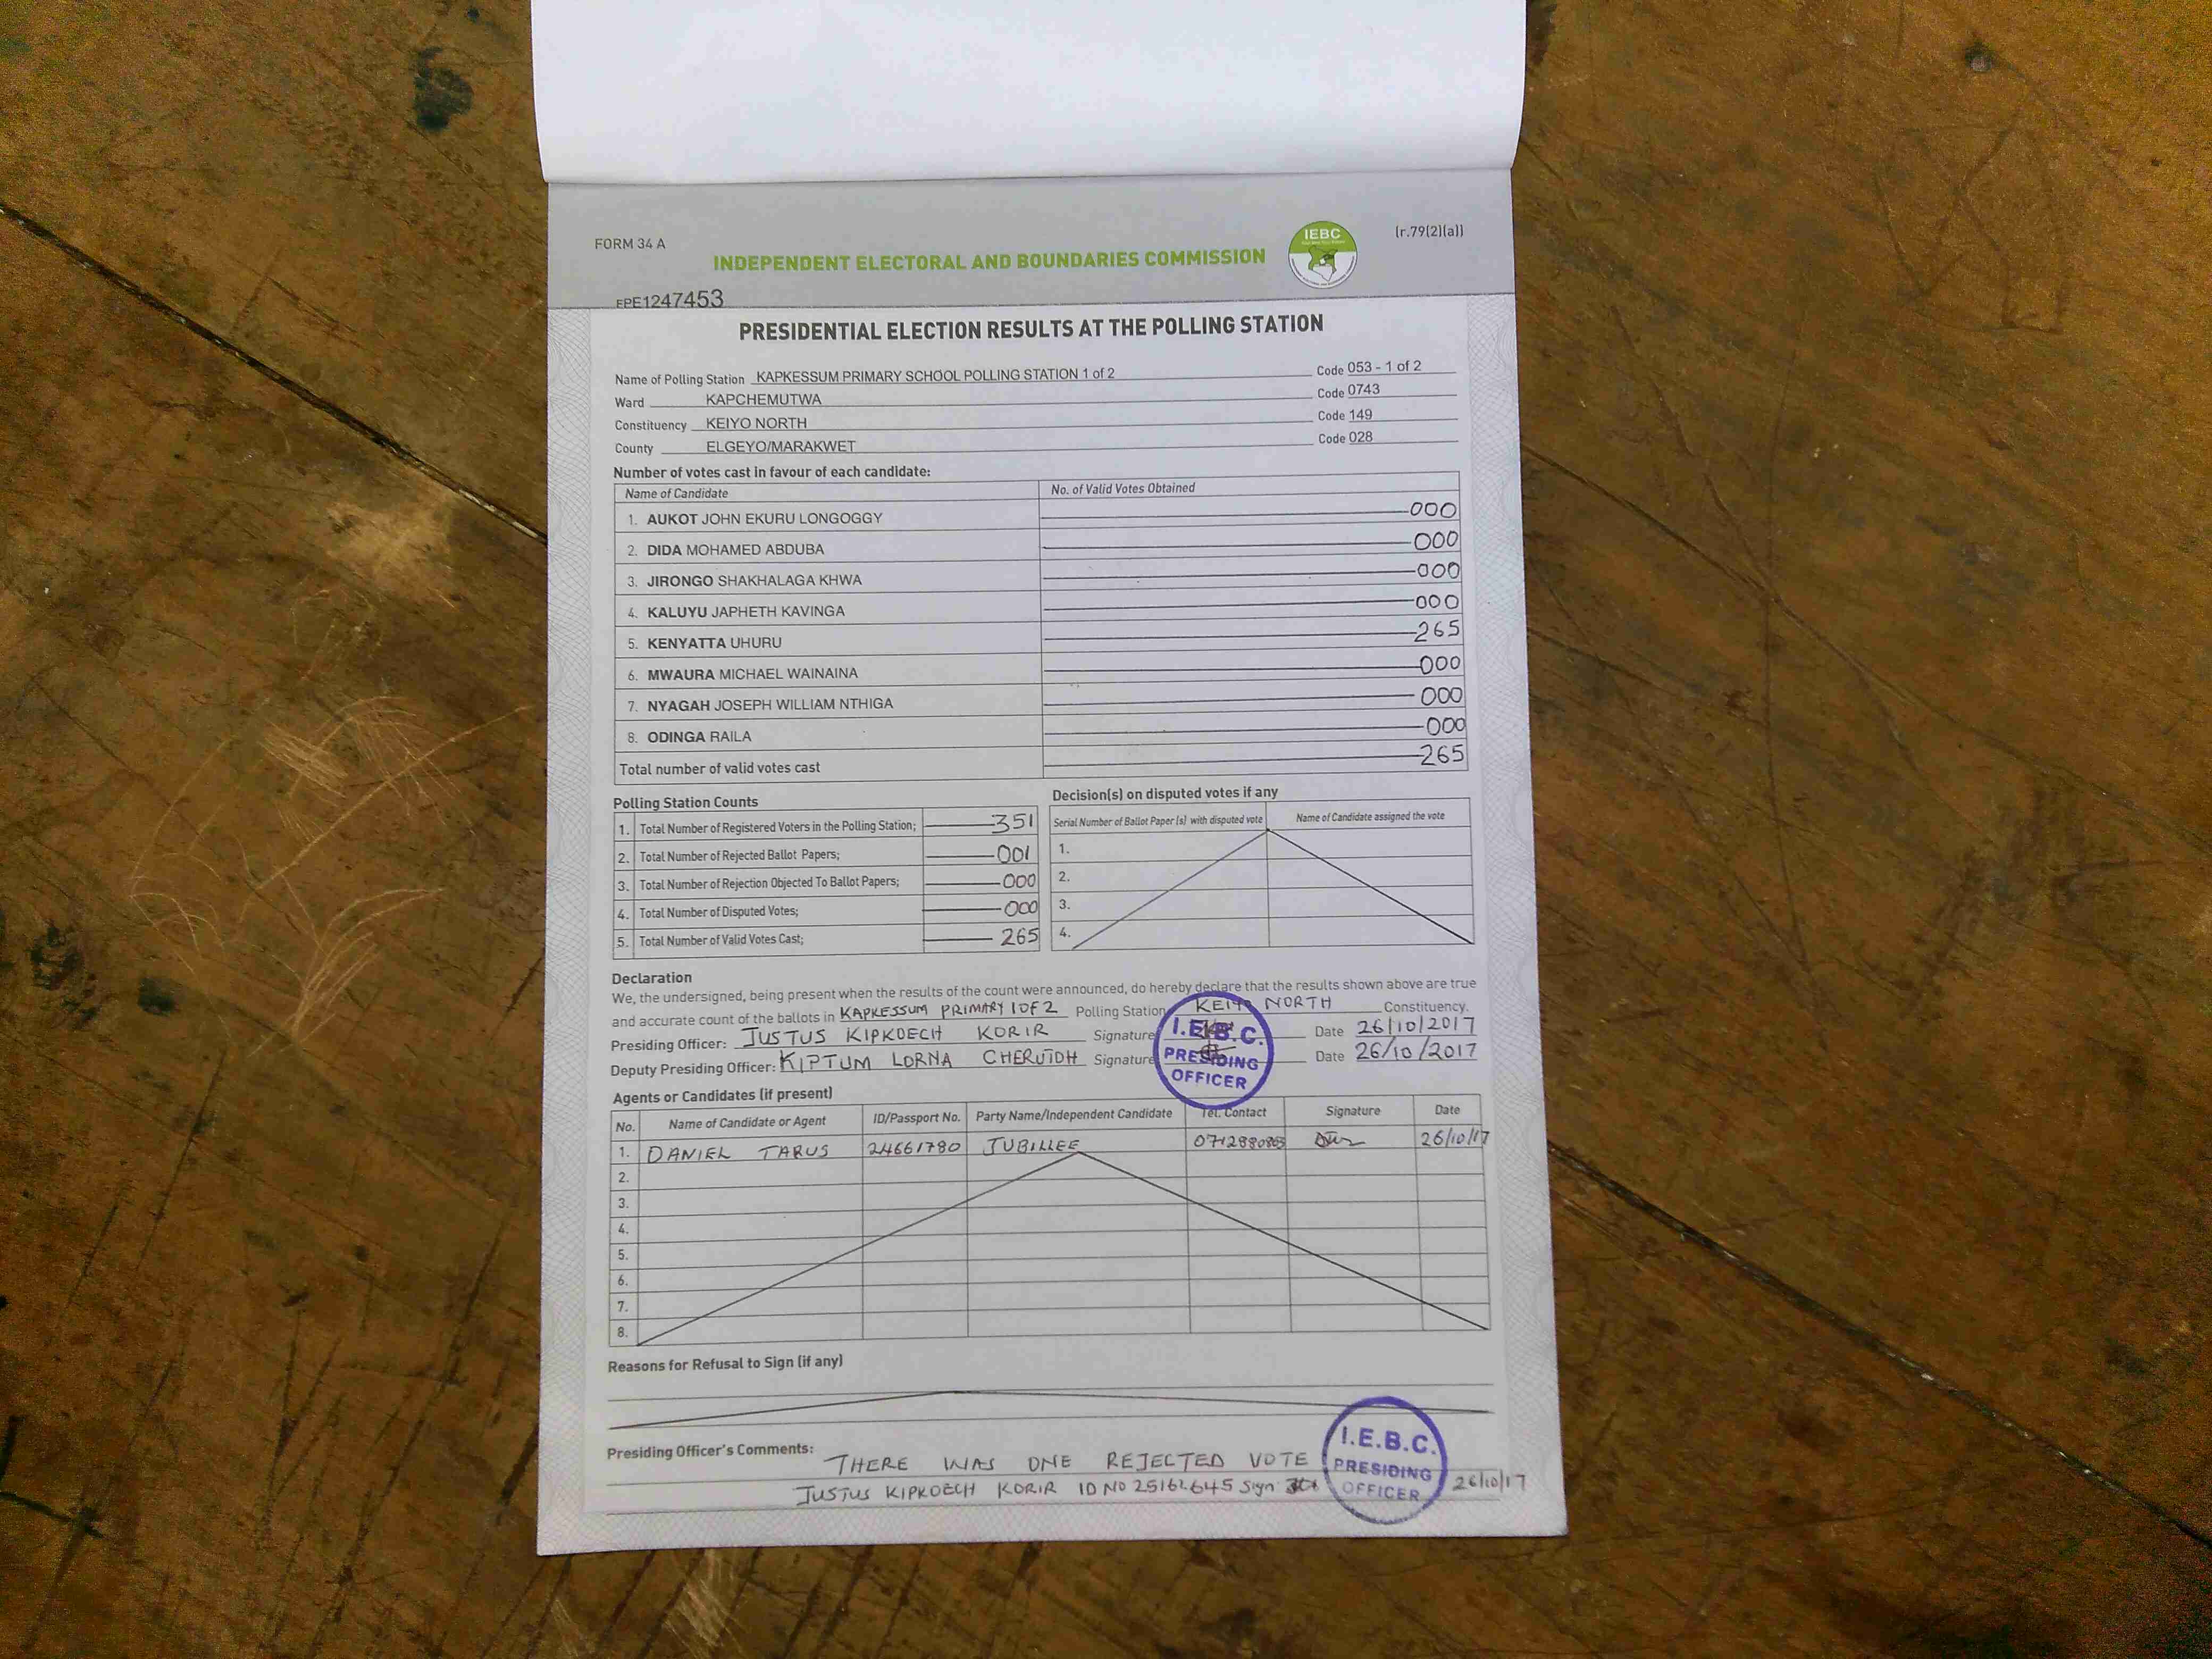 FORM 34 A
IEBC
(r.79(2)(a))
INDEPENDENT ELECTORAL AND BOUNDARIES COMMISSION
EPE1247453
PRESIDENTIAL ELECTION RESULTS AT THE POLLING STATION
Name of Polling Station KAPKESSUM PRIMARY SCHOOL POLLING STATION 1 of 2 Code 053 - 1 of 2
Ward KAPCHEMUTWA Code 0743
Constituency KEIYO NORTH Code 149
County ELGEYO/MARAKWET Code 028
Number of votes cast in favour of each candidate:
Name of Candidate No. of Valid Votes Obtained
1. AUKOT JOHN EKURU LONGOGGY 000
2. DIDA MOHAMED ABDUBA 000
3. JIRONGO SHAKHALAGA KHWA 000
4. KALUYU JAPHETH KAVINGA 000
5. KENYATTA UHURU 265
6. MWAURA MICHAEL WAINAINA 000
7. NYAGAH JOSEPH WILLIAM NTHIGA 000
8. ODINGA RAILA 000
Total number of valid votes cast 265
Polling Station Counts
1. Total Number of Registered Voters in the Polling Station; 351
2. Total Number of Rejected Ballot Papers; 001
3. Total Number of Rejection Objected To Ballot Papers; 000
4. Total Number of Disputed Votes; 000
5. Total Number of Valid Votes Cast; 265
Decision(s) on disputed votes if any
Serial Number of Ballot Paper (s) with disputed vote Name of Candidate assigned the vote
1.
2.
3.
4.
Declaration
We, the undersigned, being present when the results of the count were announced, do hereby declare that the results shown above are true
and accurate count of the ballots in KAPKESSUM PRIMARY 1 OF 2 Polling Station KEIYO NORTH Constituency.
Presiding Officer: JUSTUS KIPKOECH KORIR Signature Date 26/10/2017
Deputy Presiding Officer: KIPTUM LORNA CHERUTOH Signature Date 26/10/2017
I.E.B.C.
PRESIDING
OFFICER
Agents or Candidates (if present)
No. Name of Candidate or Agent ID/Passport No. Party Name/Independent Candidate Tel. Contact Signature Date
1. DANIEL TARUS 24661780 JUBILLEE 26/10/17
2.
3.
4.
5.
6.
7.
8.
Reasons for Refusal to Sign (if any)
Presiding Officer's Comments: THERE WAS ONE REJECTED VOTE
JUSTUS KIPKOECH KORIR ID NO 25162645 Sign: 26/10/17
I.E.B.C.
PRESIDING
OFFICER